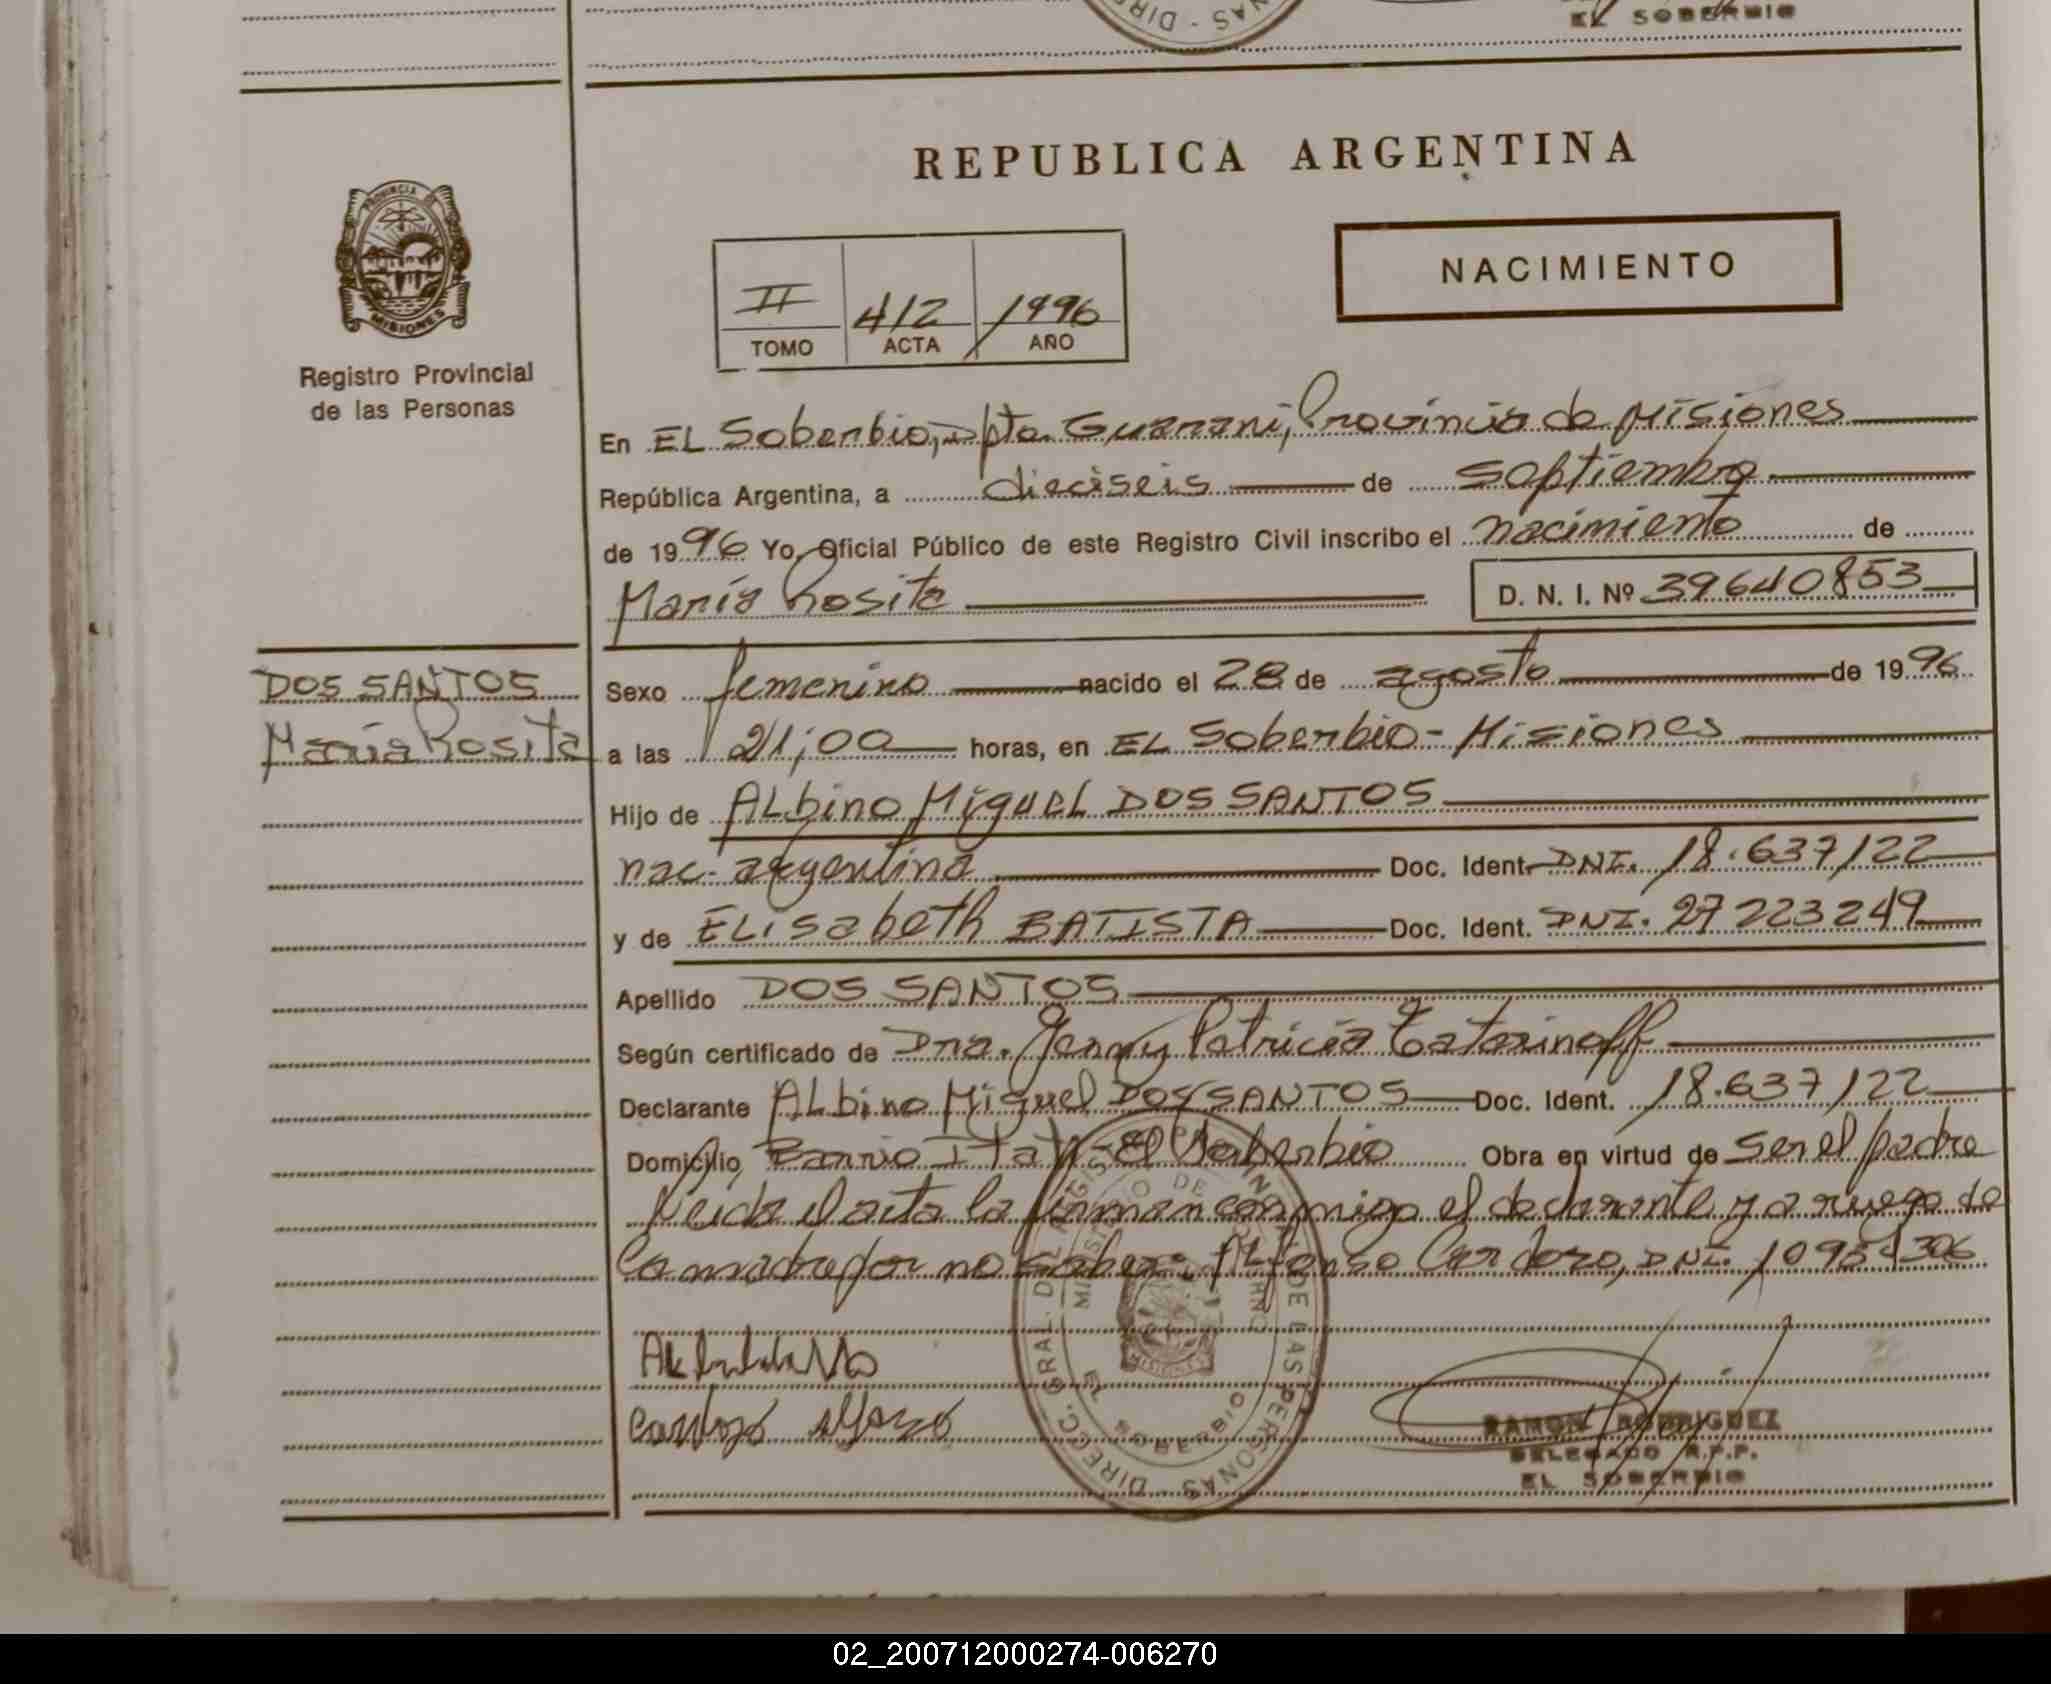 EL SOBERBIO
REPUBLICA ARGENTINA
NACIMIENTO
II 412 1996
TOMO ACTA AÑO
PROVINCIA DE
MISIONES
Registro Provincial
de las Personas
En EL Soberbio, Dpto. Guarani, Provincia de Misiones
República Argentina, a dieciseis de septiembre
de 1996 Yo, Oficial Público de este Registro Civil inscribo el nacimiento de
María Rosita D. N. I. Nº 39640853
DOS SANTOS
María Rosita
Sexo femenino nacido el 28 de agosto de 1996
a las 21,00 horas, en EL Soberbio - Misiones
Hijo de ALbino MigueL DOS SANTOS
nac. argentina Doc. Ident. DNI. 18.637122
y de ELisabeth BATISTA Doc. Ident. DNI. 27223249
Apellido DOS SANTOS
Según certificado de Dra. Jenny Patricia
Declarante ALbino Miguel DOS SANTOS Doc. Ident. 18.637122
Domicilio Barrio Itati - El Soberbio Obra en virtud de ser el padre
Leida el acta la firman conmigo el declarante y a ruego de
la madre por no saber: ALfonso Cardozo, DNI.
Cardozo Alfonso
RAMON RODRIGUEZ
DELEGADO R.P.P.
EL SOBERBIO
02_200712000274-006270